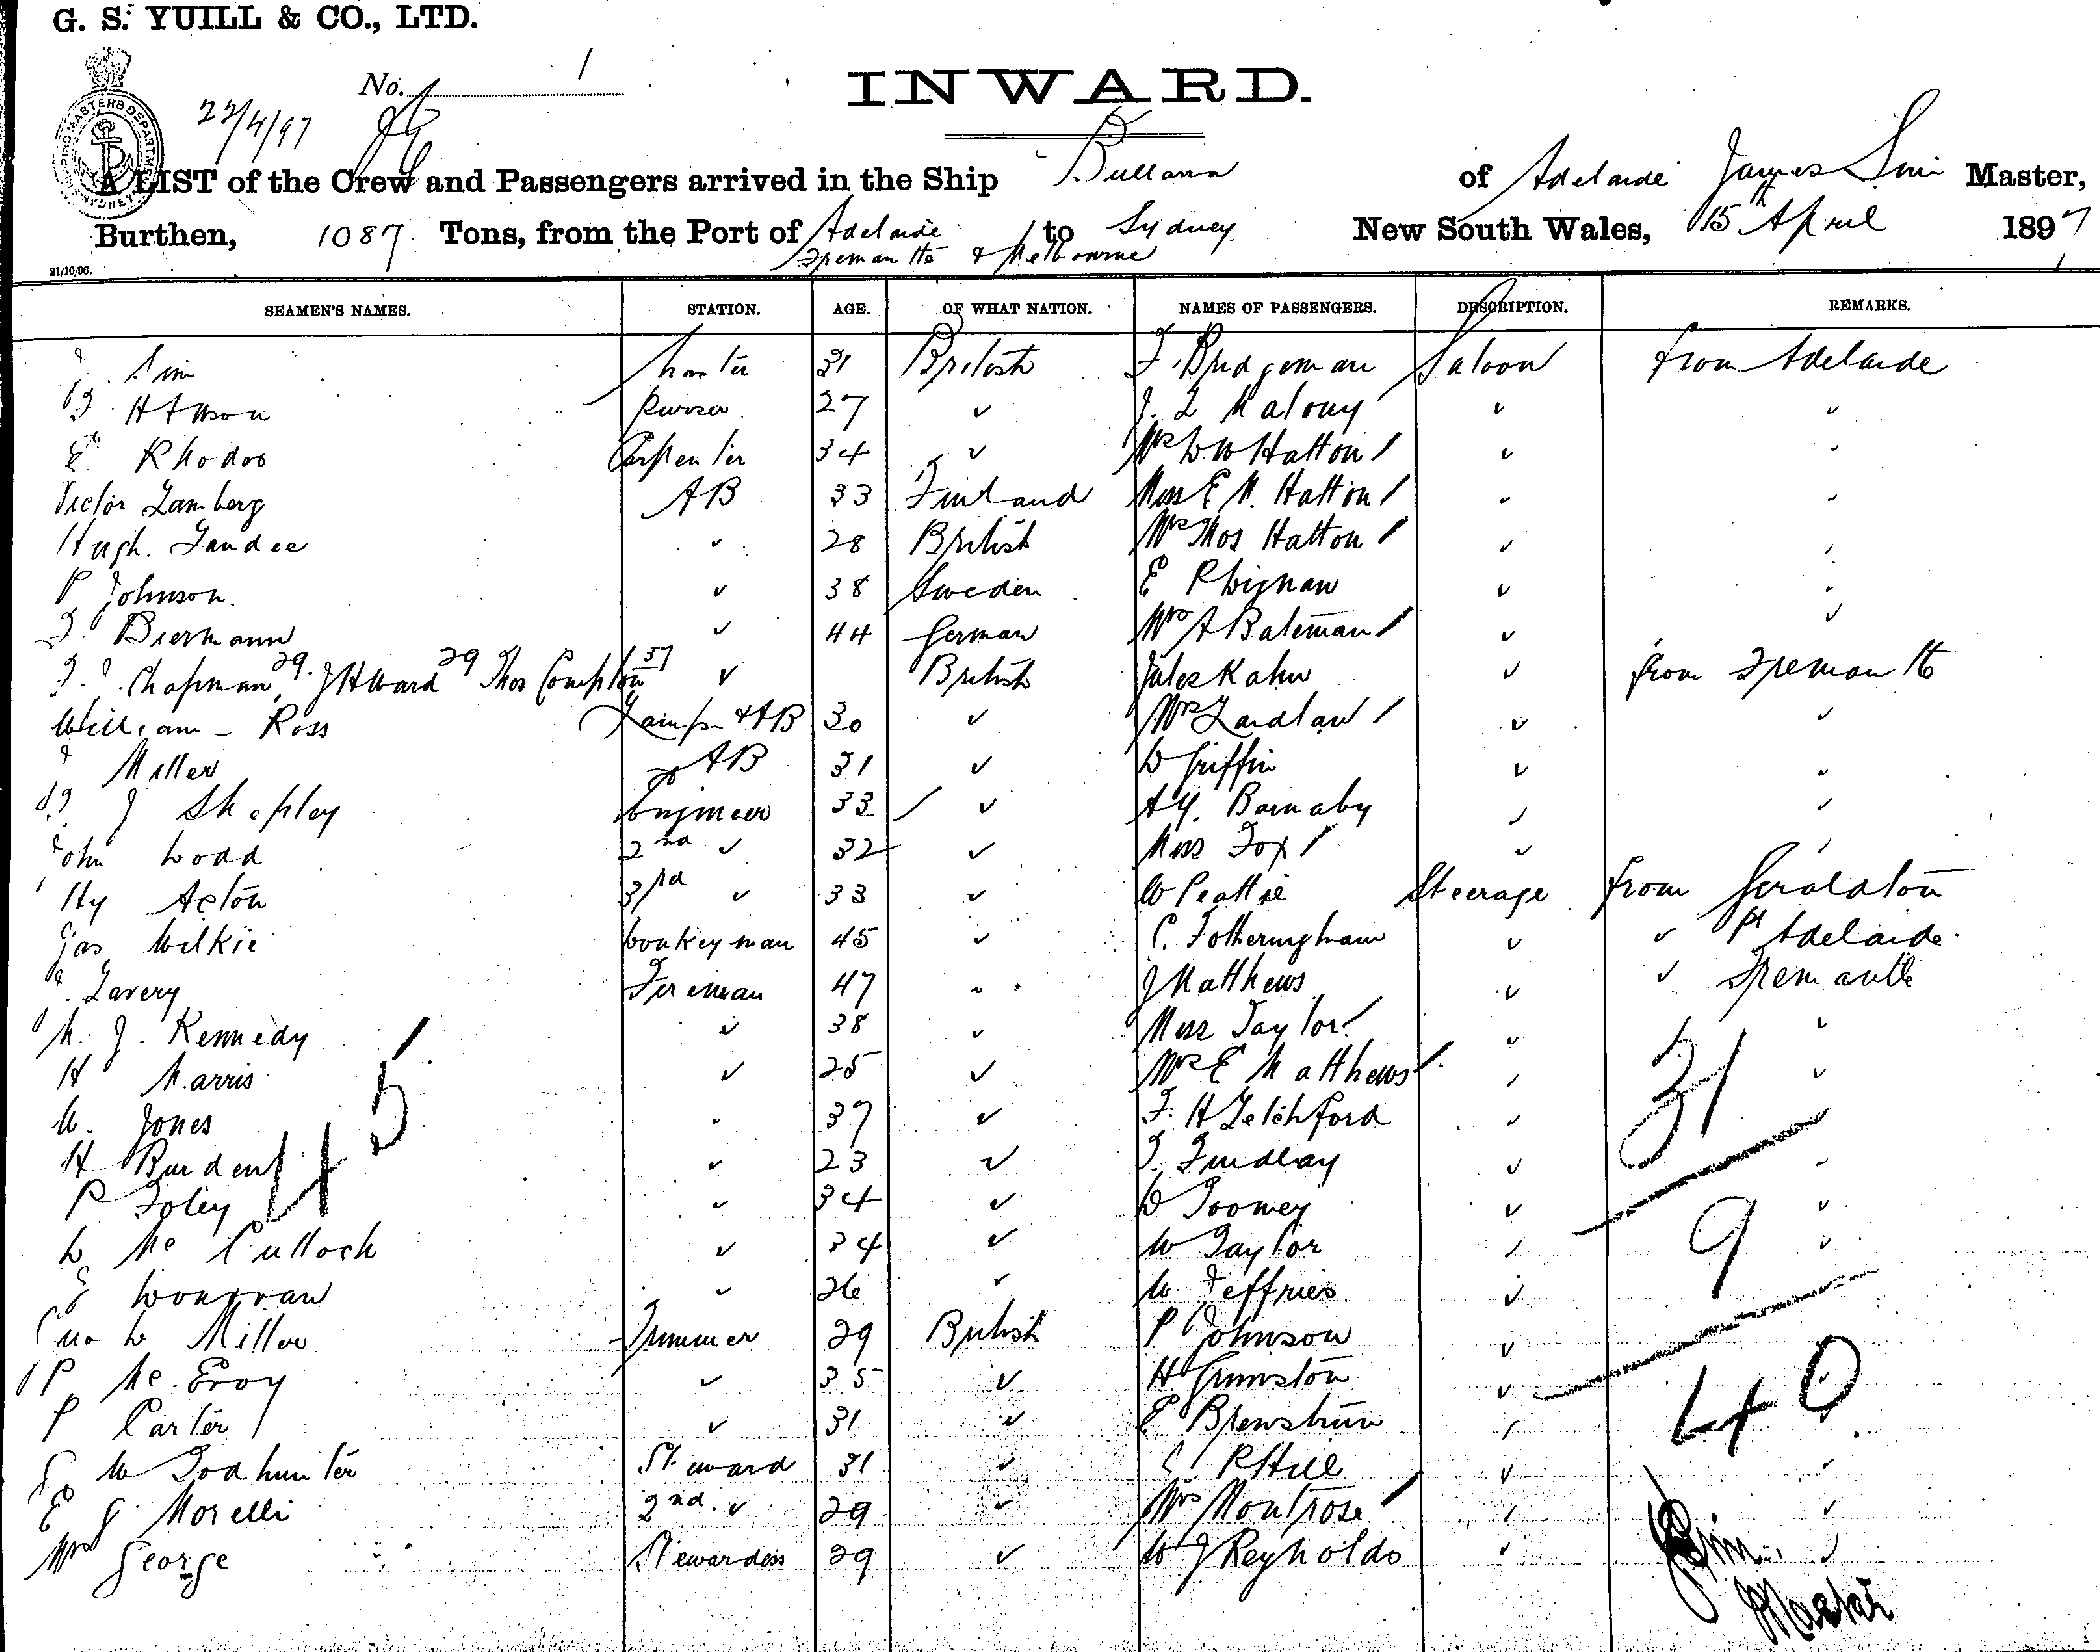 G. S. YUILL & CO., LTD.
No. 1
INWARD.
22/4/97
A LIST of the Crew and Passengers arrived in the Ship Bullarra of Adelaide James Sim Master,
Burthen, 1087 Tons, from the Port of Adelaide to Sydney New South Wales, 15th April 1897
Fremantle & Melbourne
21/10/96.
SEAMEN'S NAMES. STATION. AGE. OF WHAT NATION. NAMES OF PASSENGERS. DESCRIPTION. REMARKS.
J. Sim Master 31 British F. Bridgeman Saloon from Adelaide
Purser 27 ✓ J. L Malony ✓ ✓
E Rhodes Carpenter 34 ✓ Mrs W Hatton ✓ ✓
Victor Lamberg AB 33 Finland Miss E M. Hatton ✓ ✓
Hugh. Landee ✓ 28 British Mrs Thos Hatton ✓ ✓
P Johnson ✓ 38 Sweden E P ✓ ✓
Biermann ✓ 44 German Mrs A Bateman ✓ ✓
Chapman 29. J H Ward 29 Thos Compton 37 ✓ British Jules Kahn ✓ from Fremantle
William Ross Lamps & AB 30 ✓ Mrs Laidlaw ✓ ✓
J Miller AB 31 ✓ D Griffin ✓ ✓
J Shepley Engineer 33 ✓ A Y. Barnaby ✓ ✓
John Dodd 2nd ✓ 32 ✓ Miss Fox ✓ ✓
Hy Acton 3rd ✓ 33 ✓ W Peattie Steerage from Geraldton
Jas Wilkie Donkeyman 45 ✓ C. Fotheringham ✓ ✓ Pt Adelaide
Lavery Fireman 47 ✓ J Matthews ✓ ✓ Fremantle
M. J. Kennedy ✓ 38 ✓ Miss Taylor ✓ ✓
H Harris ✓ 25 ✓ Mrs E Matthews ✓ ✓
W. Jones ✓ 37 ✓ F. H Letchford ✓ ✓
H Burden ✓ 23 ✓ T. Findlay ✓ ✓
P Foley ✓ 34 ✓ D Toomey ✓ ✓
D Mc Culloch ✓ 34 ✓ W Taylor ✓ ✓
E Donovan ✓ 26 ✓ W. Jeffries ✓
D Miller Trimmer 29 British P Johnson ✓
P Mc Evoy ✓ 35 ✓ H Grimston ✓
P Carter ✓ 31 ✓ E ✓
W Todhunter Steward 31 ✓ R Hill ✓ ✓
E J Morelli 2nd ✓ 29 ✓ Mrs Montrose ✓ ✓
Mrs George Stewardess 29 ✓ W J Reynolds ✓ ✓
45
31
9
40
J Sim
Master